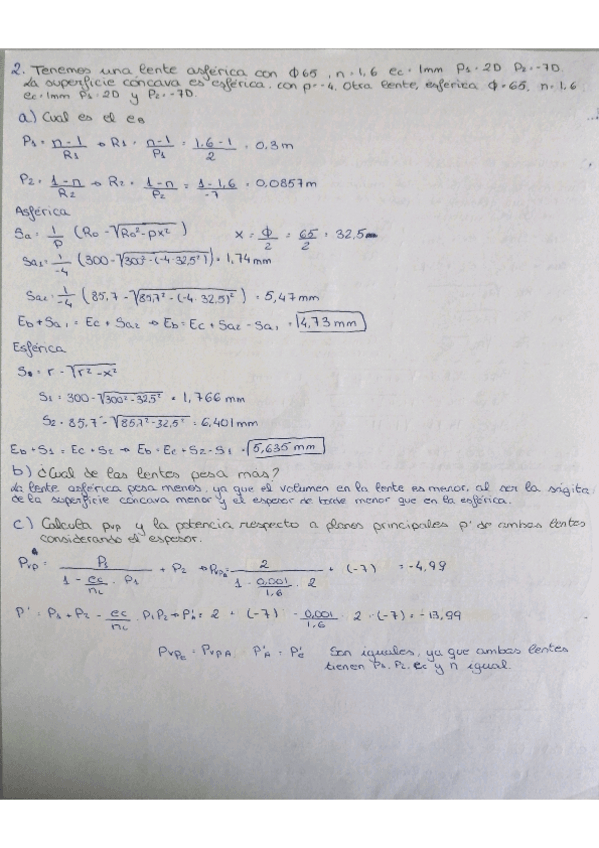 2. Tenemos una lente asférica con Φ65, n=1,6 ec=1mm P1=2D P2=-7D.
La superficie cóncava es esférica, con p=-4. Otra lente, esférica Φ=65, n=1,6
ec=1mm P1=2D y P2=-7D.
a) Cual es el eB
P1 = n-1/R1 → R1 = n-1/P1 = 1,6-1/2 = 0,3m
P2 = 1-n/R2 → R2 = 1-n/P2 = 1-1,6/-7 = 0,0857m
Asférica
Sa = 1/p (R0 - √R0²-px²) x = Φ/2 = 65/2 = 32,5
Sa1 = 1/-4 (300 - √300²-(-4·32,5²)) = 1,74mm
Sa2 = 1/-4 (85,7 - √85,7²-(-4·32,5)²) = 5,47mm
Eb + Sa1 = Ec + Sa2 → Eb = Ec + Sa2 - Sa1 = 4,73 mm
Esférica
S = r - √r²-x²
S1 = 300 - √300²-32,5² = 1,766 mm
S2 = 85,7 - √85,7²-32,5² = 6,401mm
Eb + S1 = Ec + S2 → Eb = Ec + S2 - S1 = 5,635 mm
b) ¿Cual de las lentes pesa mas?
La lente asférica pesa menos, ya que el volumen en la lente es menor, al ser la ságita
de la superficie cóncava menor y el espesor de borde menor que en la esférica.
c) Calcula pvp y la potencia respecto a planos principales p' de ambas lentes
considerando el espesor.
Pvp = P1/1 - ec/nL · P1 + P2 → Pvp = 2/1 - 0,001/1,6 · 2 + (-7) = -4,99
P' = P1 + P2 - ec/nL · P1P2 → P'A = 2 + (-7) - 0,001/1,6 · 2·(-7) = -13,99
PvpE = PvpA P'A = P'E Son iguales, ya que ambas lentes
tienen P1, P2, ec y n igual.